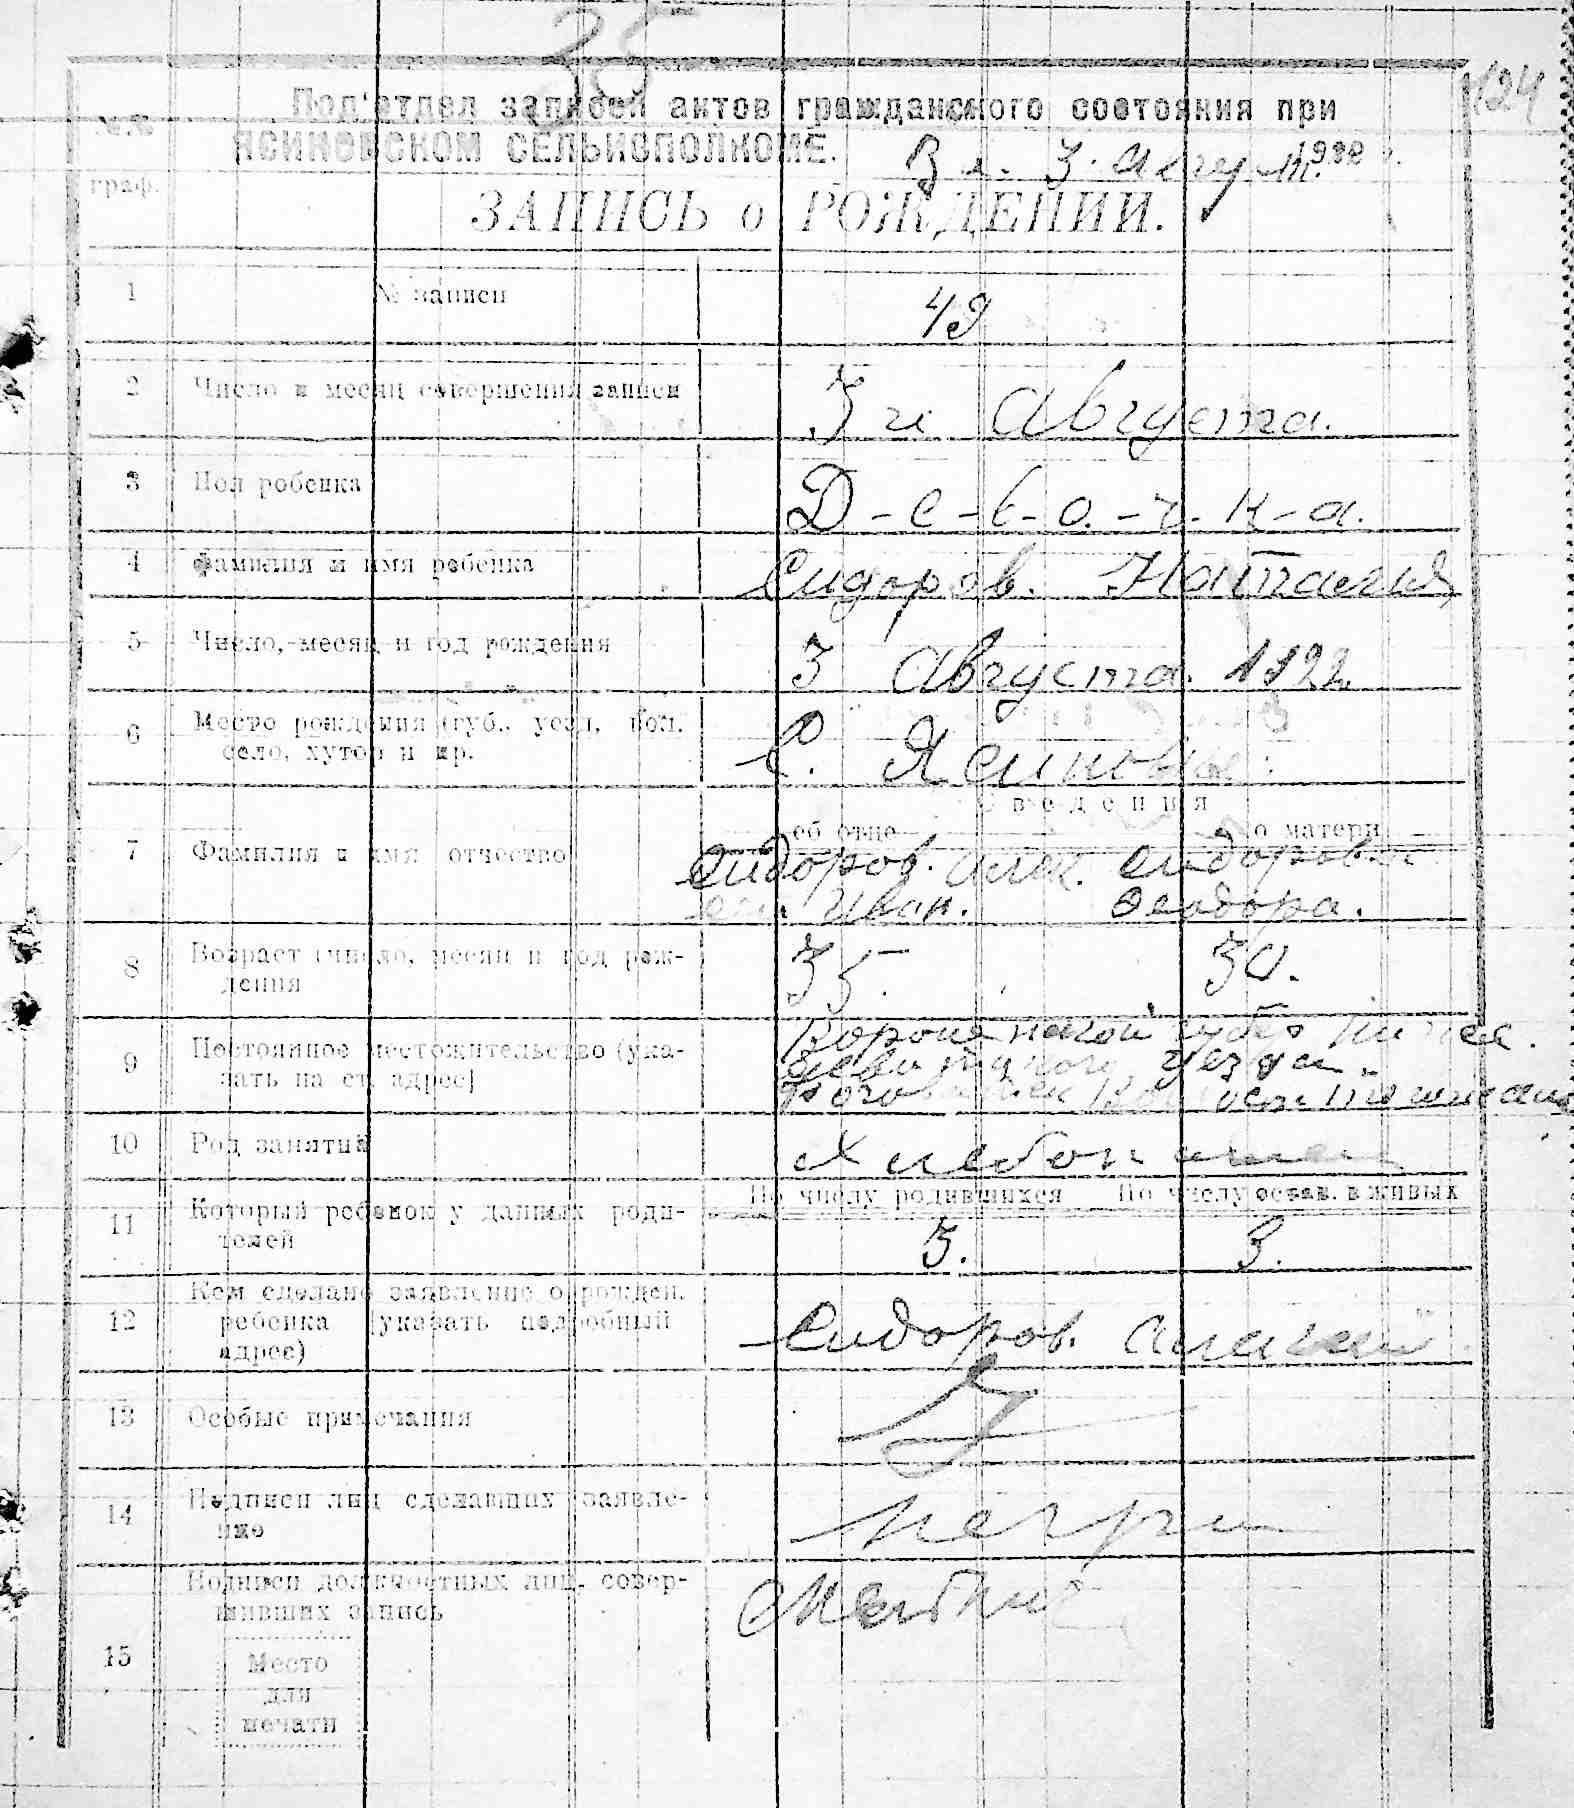 35
124
Под'отдел записей актов гражданского состояния при
ЯСИНОВСКОМ СЕЛЬИСПОЛКОМЕ.
3. Август. 1922 г.
№.№
граф.
ЗАПИСЬ о РОЖДЕНИИ.
1 № записи 49
2 Число и месяц совершения записи 3 го Августа.
3 Пол ребенка Д-е-в-о-ч-к-а.
4 Фамилия и имя ребенка Сидоров. Наталия
5 Число, месяц и год рождения 3 Августа. 1922
6 Место рождения (губ., уезд, вол. С. Ясиновка
село, хутор и пр.
Сведения
об отце о матери
7 Фамилия и имя отчество Сидоров. Алек. Сидорова
Иван. Феодора.
8 Возраст (число, месяц и год рож- 35. 30.
дения
9 Постоянное местожительство (ука- Воронежской губер
зать на ст. адрес) уезда
10 Род занятий Хлебопашец
По числу родившихся По числу остав. в живых
11 Который ребенок у данных роди- 3. 3.
телей
12 Кем сделано заявление о рожден.
ребенка (указать подробный Сидоров. Алексей
адрес)
13 Особые примечания
14 Подписи лиц сделавших заявле- негр
ние
Подписи должностных лиц, совер-
шивших запись
15 Место
для
печати